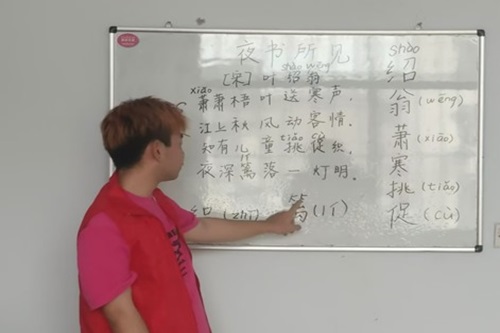 夜书所见
shào wēng
[宋]叶绍翁
xiāo
萧萧梧叶送寒声,
江上秋风动客情.
tiǎo cù
知有儿童挑促织,
夜深篱落一灯明.
织(zhī)
shào
绍
翁(wēng)
萧(xiāo)
寒
挑(tiǎo)
促(cù)